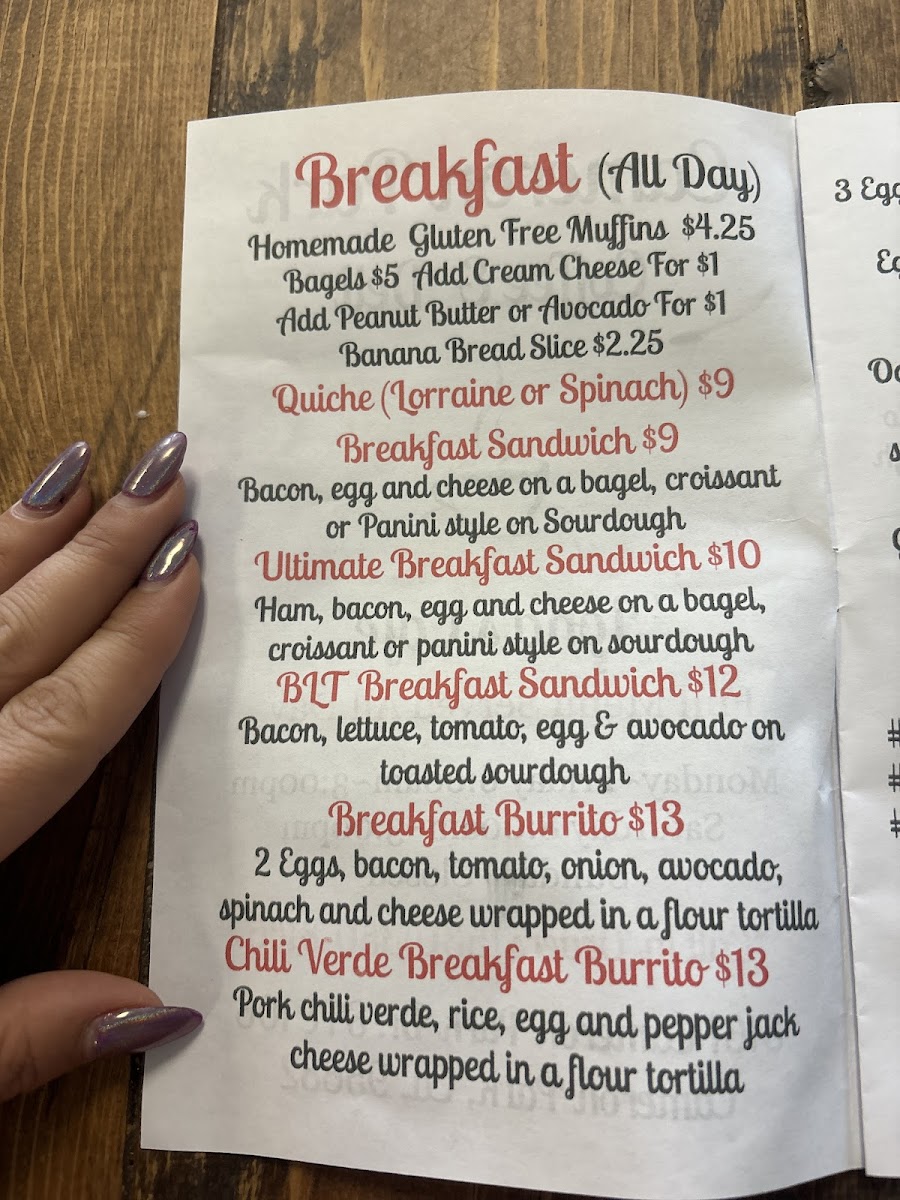 Breakfast (All Day)
Homemade Gluten Free Muffins $4.25
Bagels $5 Add Cream Cheese For $1
Add Peanut Butter or Avocado For $1
Banana Bread Slice $2.25
Quiche (Lorraine or Spinach) $9
Breakfast Sandwich $9
Bacon, egg and cheese on a bagel, croissant
or Panini style on Sourdough
Ultimate Breakfast Sandwich $10
Ham, bacon, egg and cheese on a bagel,
croissant or panini style on sourdough
BLT Breakfast Sandwich $12
Bacon, lettuce, tomato, egg & avocado on
toasted sourdough
Breakfast Burrito $13
2 Eggs, bacon, tomato, onion, avocado,
spinach and cheese wrapped in a flour tortilla
Chili Verde Breakfast Burrito $13
Pork chili verde, rice, egg and pepper jack
cheese wrapped in a flour tortilla
3